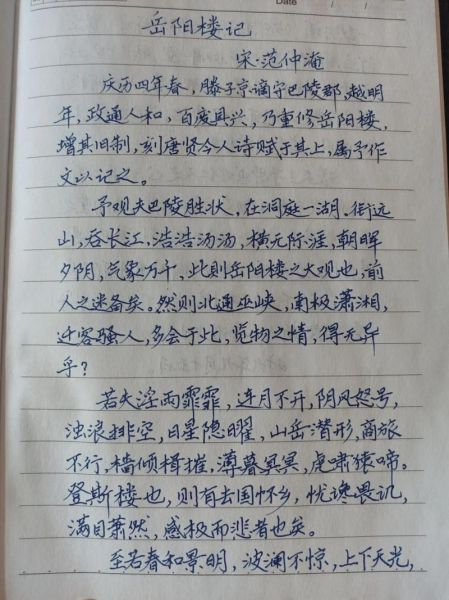 Date / /
岳阳楼记
宋·范仲淹
庆历四年春,滕子京谪守巴陵郡,越明
年,政通人和,百废具兴,乃重修岳阳楼,
增其旧制,刻唐贤今人诗赋于其上,属予作
文以记之。
予观夫巴陵胜状,在洞庭一湖。衔远
山,吞长江,浩浩汤汤,横无际涯,朝晖
夕阴,气象万千,此则岳阳楼之大观也,前
人之述备矣。然则北通巫峡,南极潇湘,
迁客骚人,多会于此,览物之情,得无异
乎?
若夫淫雨霏霏,连月不开,阴风怒号,
浊浪排空,日星隐曜,山岳潜形,商旅
不行,樯倾楫摧,薄暮冥冥,虎啸猿啼。
登斯楼也,则有去国怀乡,忧谗畏讥,
满目萧然,感极而悲者也矣。
至若春和景明,波澜不惊,上下天光,